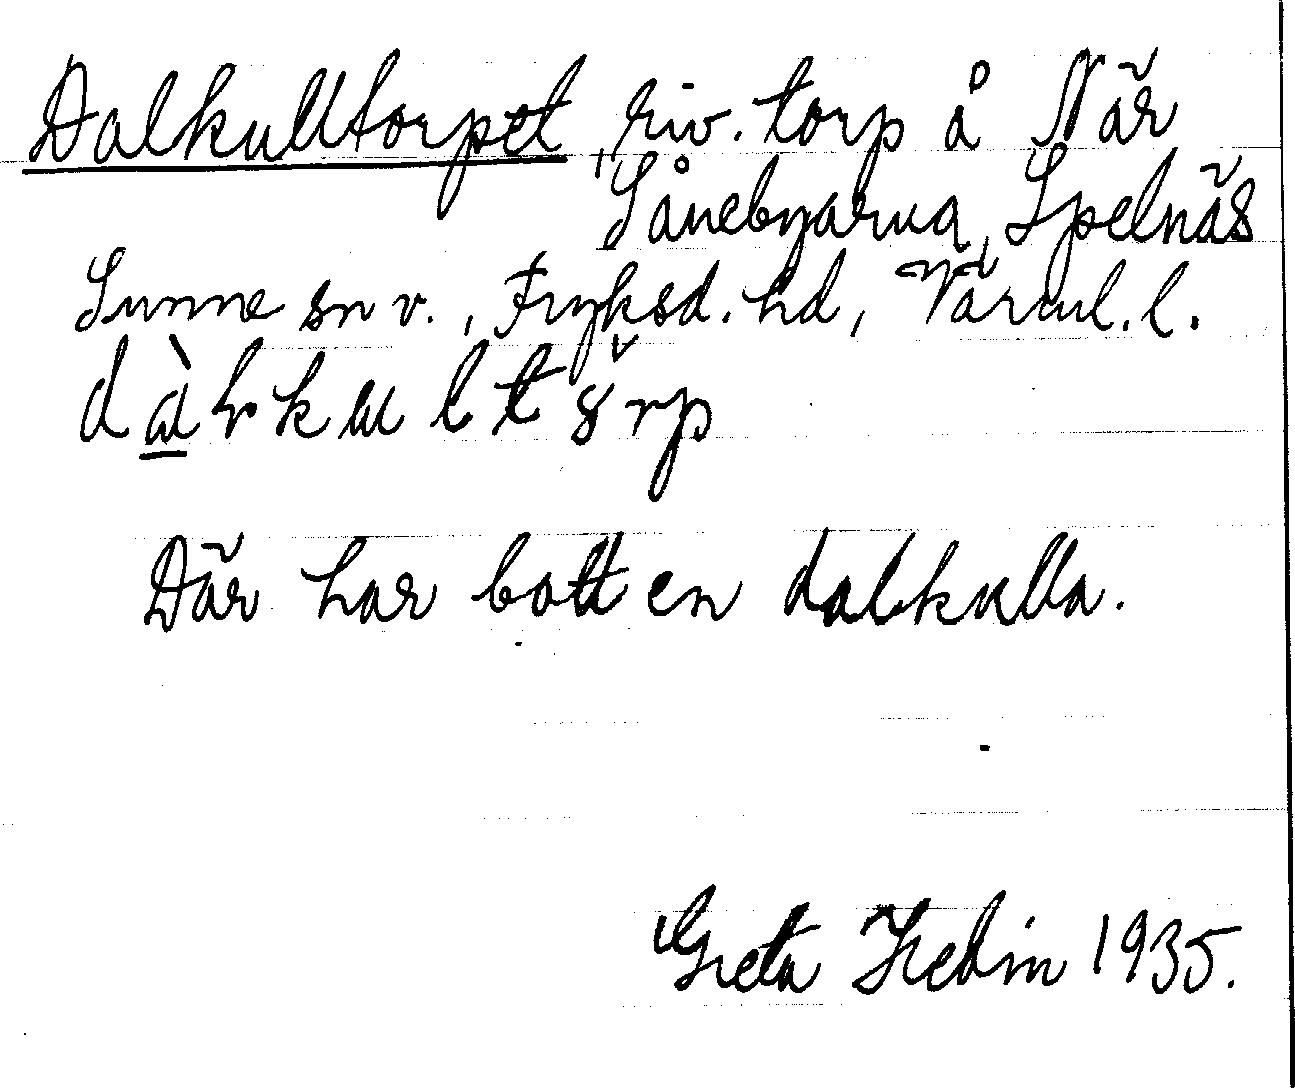 Dalkulltorpet, riv. torp å När
Sånebyarna, Spelnäs
Sunne sn v., Fryksd. hd, Värml. l.
Där har bott en dalkulla.
Greta Hedin 1935.